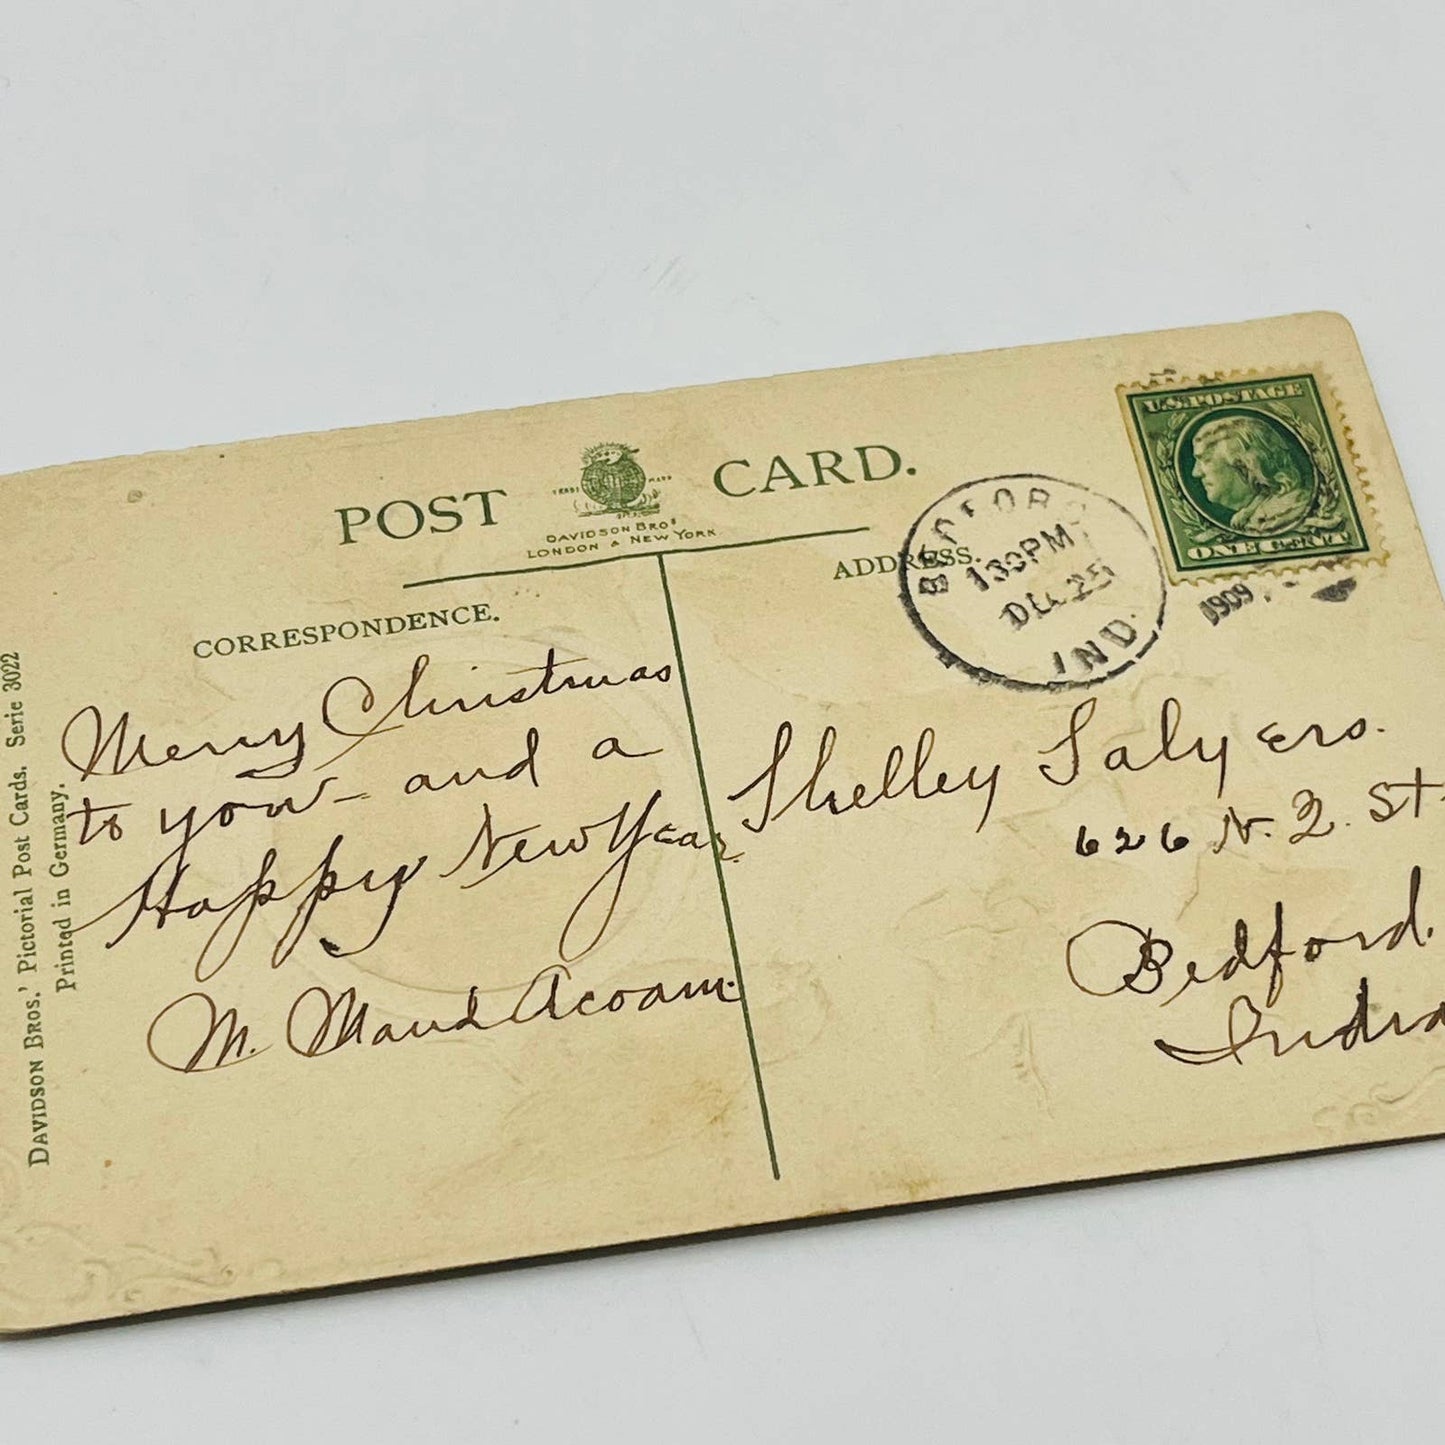 POST CARD.
TRADE MARK
DAVIDSON BROS
LONDON & NEW YORK
CORRESPONDENCE.
Merry Christmas
to you - and a
Happy New Year.
M. Maud Acoam.
ADDRESS.
BEDFORD
130PM
DEC 25
IND.
1909
U.S. POSTAGE
ONE CENT
Shelley Salyers.
626 N. 2. St.
Bedford.
India
DAVIDSON BROS.' Pictorial Post Cards. Serie 3022
Printed in Germany.